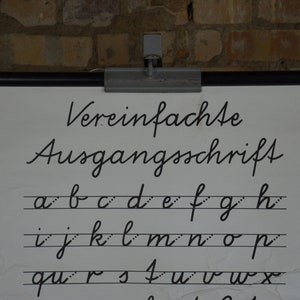 Vereinfachte
Ausgangsschrift
a b c d e f g h
i j k l m n o p
qu r s t u v w x